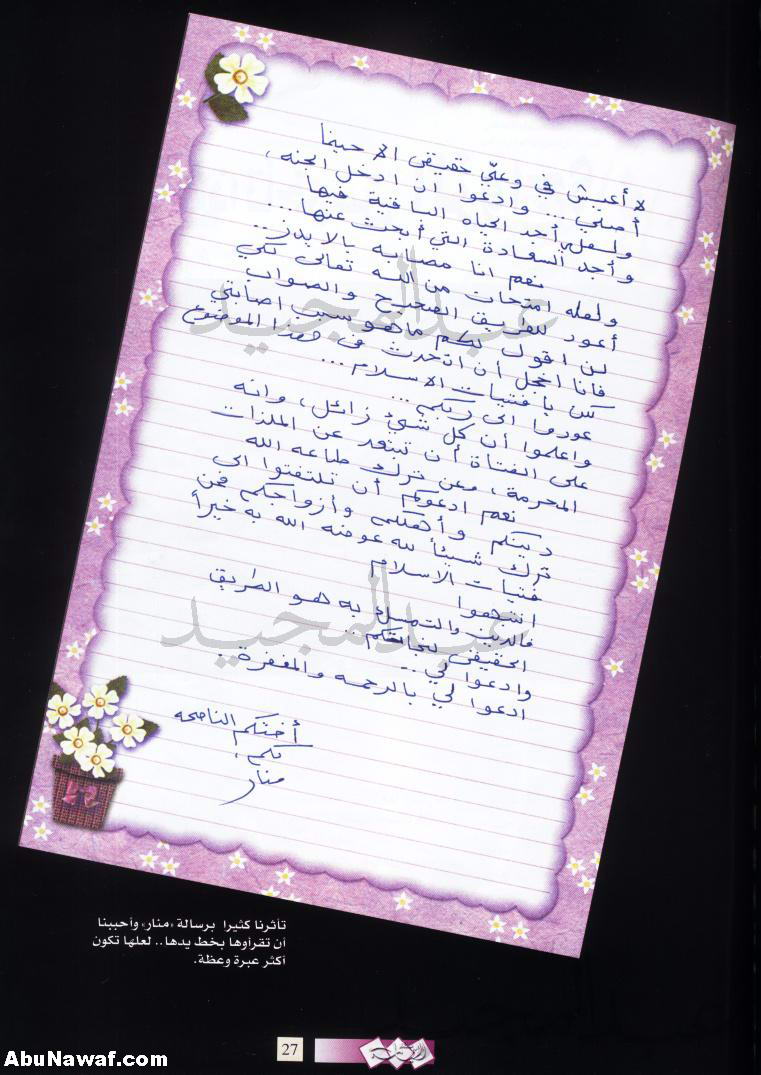 لا أعيش في وعيي حقيقي الا حينما
أصلي ... وادعوا ان ادخل الجنه ،
ولعلي أجد الحياه الباقية فيها
وأجد السعادة التي أبحث عنها ...
نعم انا مصابه بالايدز ..
ولعله امتحان من الله تعالى لكي
أعود للطريق الصحيح والصواب
لن اقول لكم ما هو سبب اصابتي
فانا اخجل أن اتحدث في هذا الموضوع
لكن يا فتيات الاسلام ...
عودوا الى ربكم ...
واعلموا أن كل شيئ زائل ، وانه
على الفتاة أن تبتعد عن الملذات
المحرمة ، وعن ترك طاعه الله
نعم ادعوكم أن تلتفتوا الى
دينكم وأهلكم وأزواجكم فمن
ترك شيئاً لله عوضه الله به خيراً
فتيات الاسلام
انتبهوا
فالدين والتمسك به هو الطريق
الحقيقي لخالقكم ..
وادعوا لي ..
ادعوا لي بالرحمه والمغفرة .
أختكم الناصحه
لكم ،
منار
عبدالمجيد
عبدالمجيد
تأثرنا كثيرا برسالة «منار» وأحببنا
أن تقرأوها بخط يدها .. لعلها تكون
أكثر عبرة وعظة.
27
AbuNawaf.com